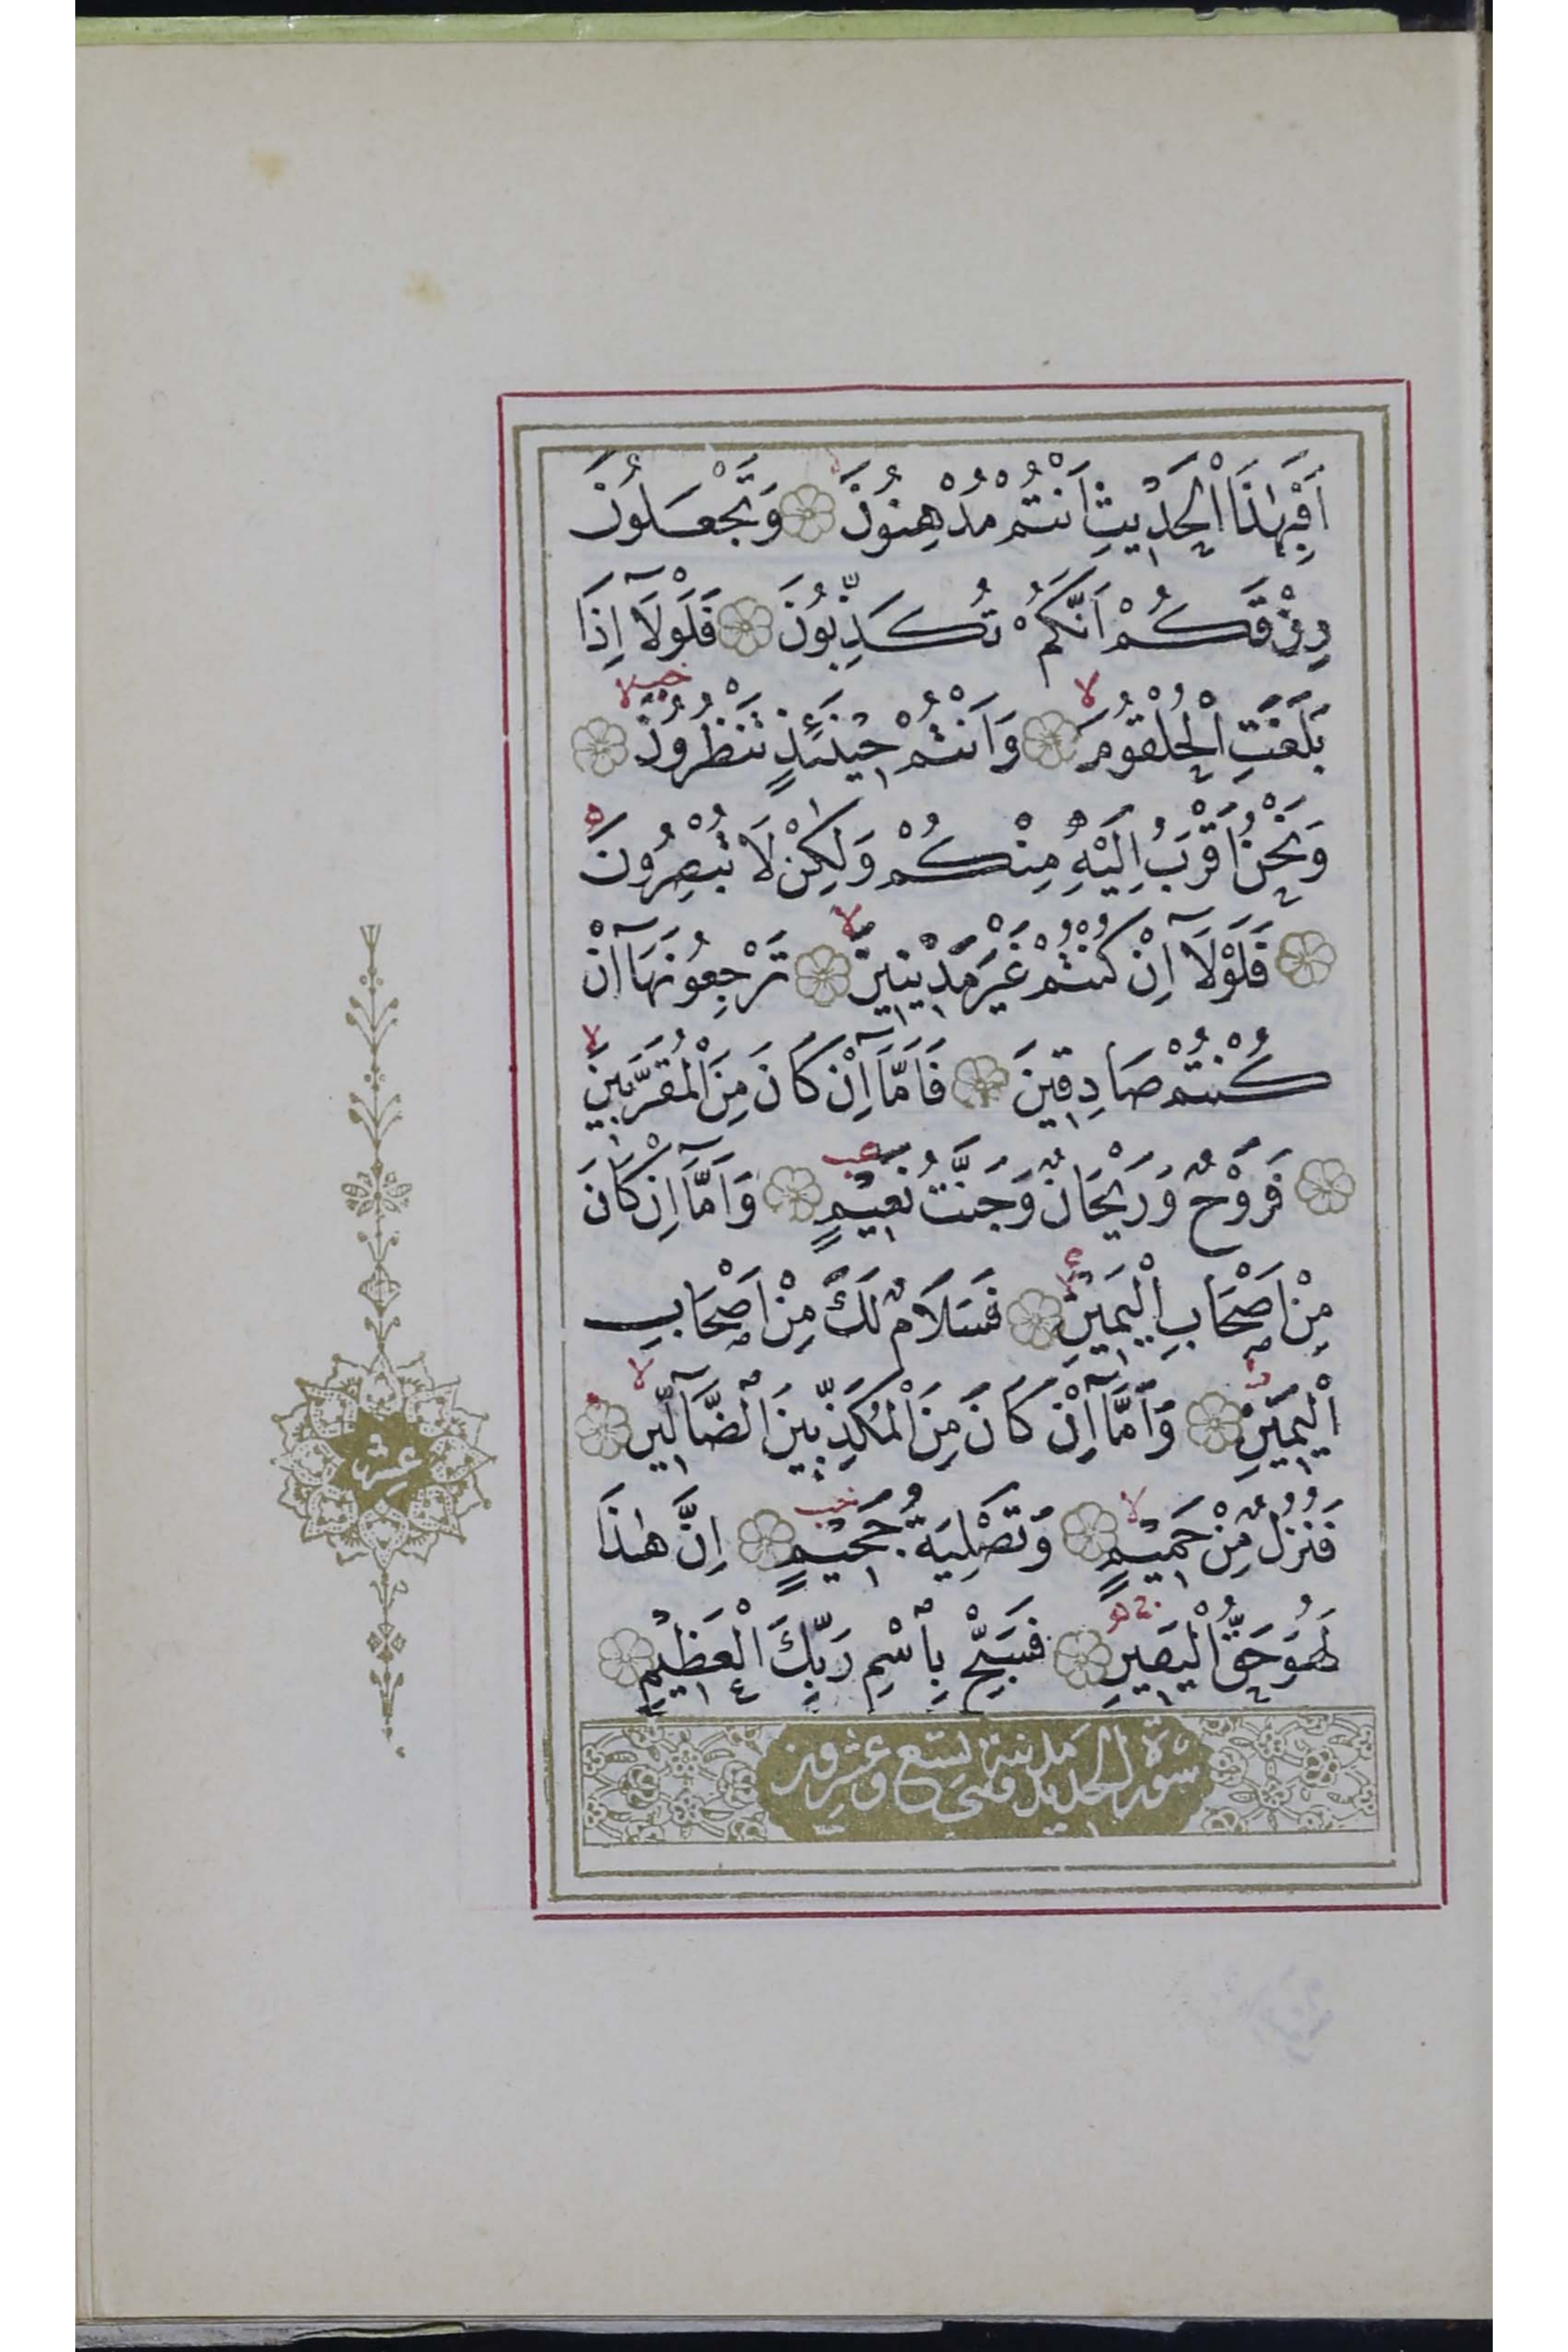 اَفَبِهٰذَا الْحَدٖيثِ اَنْتُمْ مُدْهِنُونَ وَتَجْعَلُونَ
رِزْقَكُمْ اَنَّكُمْ تُكَذِّبُونَ فَلَوْلَآ اِذَا
بَلَغَتِ الْحُلْقُومَ وَاَنْتُمْ حٖينَئِذٍ تَنْظُرُونَ
وَنَحْنُ اَقْرَبُ اِلَيْهِ مِنْكُمْ وَلٰكِنْ لَا تُبْصِرُونَ
فَلَوْلَآ اِنْ كُنْتُمْ غَيْرَ مَدٖينٖينَ تَرْجِعُونَهَآ اِنْ
كُنْتُمْ صَادِقٖينَ فَاَمَّآ اِنْ كَانَ مِنَ الْمُقَرَّبٖينَ
فَرَوْحٌ وَرَيْحَانٌ وَجَنَّتُ نَعٖيمٍ وَاَمَّآ اِنْ كَانَ
مِنْ اَصْحَابِ الْيَمٖينِ فَسَلَامٌ لَكَ مِنْ اَصْحَابِ
الْيَمٖينِ وَاَمَّآ اِنْ كَانَ مِنَ الْمُكَذِّبٖينَ الضَّآلّٖينَ
فَنُزُلٌ مِنْ حَمٖيمٍ وَتَصْلِيَةُ جَحٖيمٍ اِنَّ هٰذَا
لَهُوَ حَقُّ الْيَقٖينِ فَسَبِّحْ بِاسْمِ رَبِّكَ الْعَظٖيمِ
سورة الحديد مدنية وهى تسع وعشرون
عشر